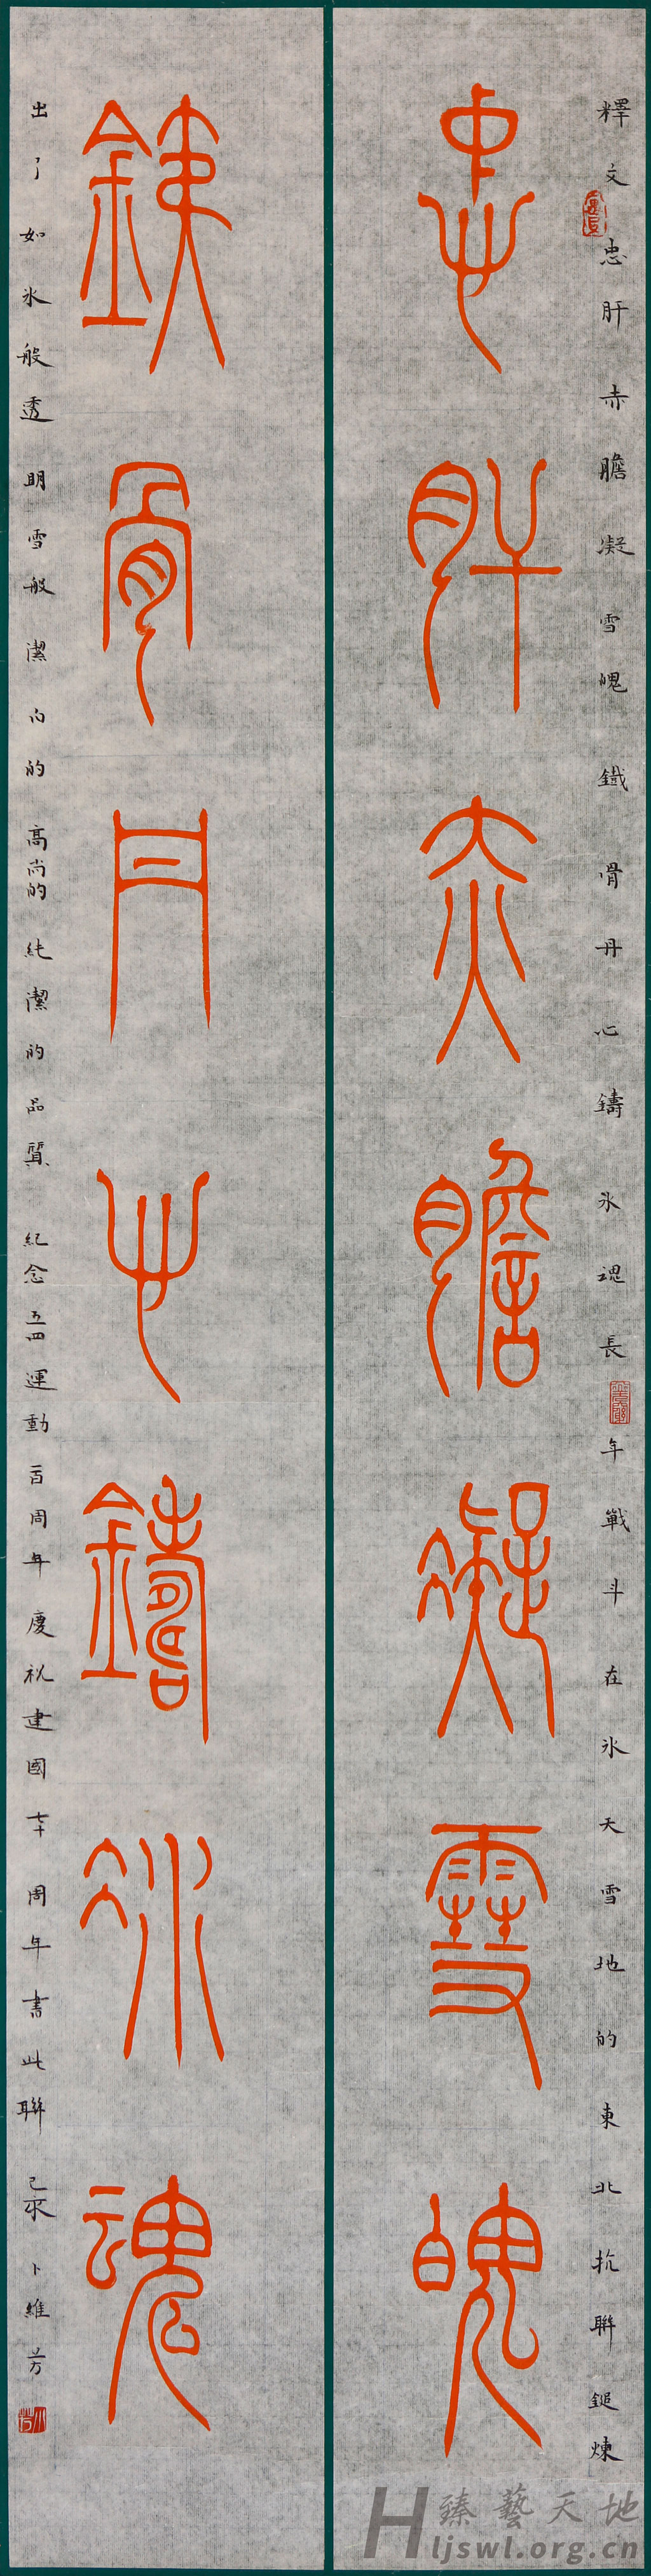 釋文忠肝赤膽凝雪魄鐵骨丹心鑄冰魂長年戰斗在冰天雪地的東北抗聯鎚煉
忠肝赤膽凝雪魄
鐵骨丹心鑄冰魂
出了如氷般透明雪般潔白的高尚的純潔的品質紀念五四運動百周年慶祝建國七十周年書此聯己亥卜維芳
臻藝天地
Hljswl.org.cn